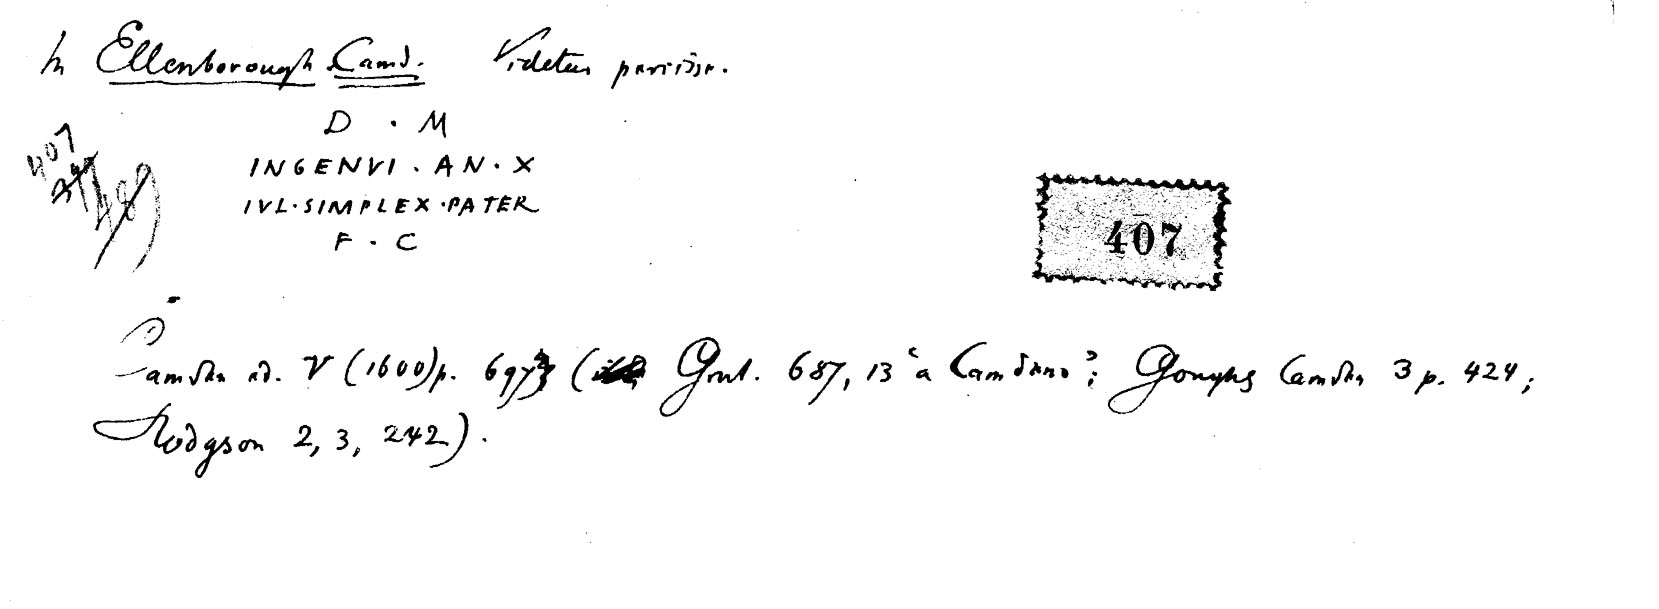 In Ellenborough Camd. Videtur periisse.
D · M
INGENVI · AN · X
IVL · SIMPLEX · PATER
F · C
407
407
Camden ed. V (1600) p. 697 ( Grut. 687, 13 'a Camdeno'; Goughs Camden 3 p. 424;
Hodgson 2, 3, 242).